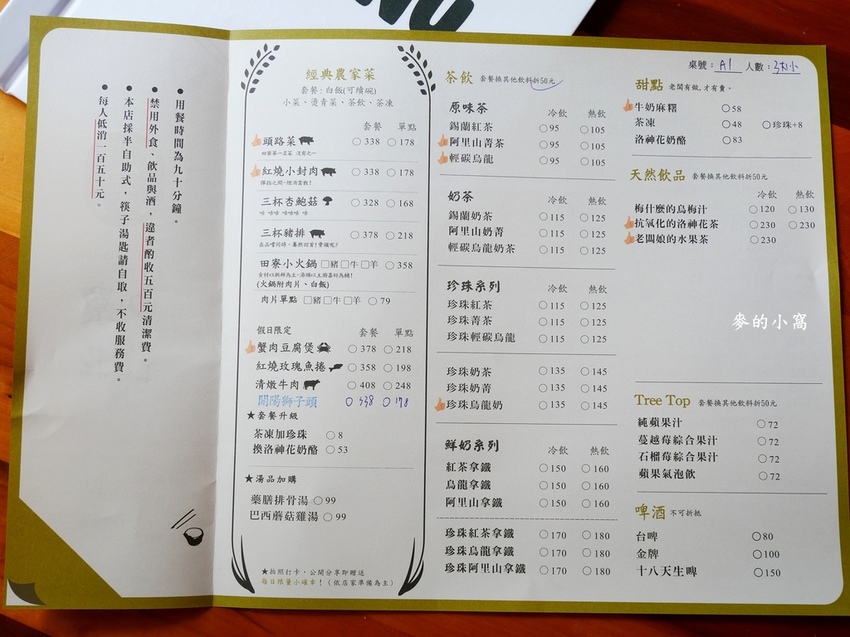 NO
• 用餐時間為九十分鐘。
• 禁用外食、飲品與酒，違者酌收五百元清潔費。
• 本店採半自助式，筷子湯匙請自取，不收服務費。
• 每人低消一百五十元。
經典農家菜
套餐：白飯(可續碗)
小菜、燙青菜、茶飲、茶凍
套餐 單點
頭路菜 ○338 ○178
紅燒小封肉 ○338 ○178
三杯杏鮑菇 ○328 ○168
三杯豬排 ○378 ○218
田寮小火鍋 □豬□牛□羊 ○358
(火鍋附肉片、白飯)
肉片單點 □豬□牛□羊 ○79
假日限定 套餐 單點
蟹肉豆腐煲 ○378 ○218
紅燒玫瑰魚捲 ○358 ○198
清燉牛肉 ○408 ○248
開陽獅子頭 ○338 ○178
★套餐升級
茶凍加珍珠 ○8
換洛神花奶酪 ○53
★湯品加購
藥膳排骨湯 ○99
巴西蘑菇雞湯 ○99
★拍照打卡，公開分享即贈送
每日限量小確幸！（依店家準備為主）
茶飲 套餐換其他飲料折50元
原味茶 冷飲 熱飲
錫蘭紅茶 ○95 ○105
阿里山菁茶 ○95 ○105
輕碳烏龍 ○95 ○105
奶茶 冷飲 熱飲
錫蘭奶茶 ○115 ○125
阿里山奶菁 ○115 ○125
輕碳烏龍奶茶 ○115 ○125
珍珠系列 冷飲 熱飲
珍珠紅茶 ○115 ○125
珍珠菁茶 ○115 ○125
珍珠輕碳烏龍 ○115 ○125
珍珠奶茶 ○135 ○145
珍珠奶菁 ○135 ○145
珍珠烏龍奶 ○135 ○145
鮮奶系列 冷飲 熱飲
紅茶拿鐵 ○150 ○160
烏龍拿鐵 ○150 ○160
阿里山拿鐵 ○150 ○160
珍珠紅茶拿鐵 ○170 ○180
珍珠烏龍拿鐵 ○170 ○180
珍珠阿里山拿鐵 ○170 ○180
桌號：A1 人數：3大1小
甜點 老闆有做,才有賣。
牛奶麻糬 ○58
茶凍 ○48 ○珍珠+8
洛神花奶酪 ○83
天然飲品 套餐換其他飲料折50元
冷飲 熱飲
梅什麼的烏梅汁 ○120 ○130
抗氧化的洛神花茶 ○230 ○230
老闆娘的水果茶 ○230
麥的小窩
Tree Top 套餐換其他飲料折50元
純蘋果汁 ○72
蔓越莓綜合果汁 ○72
石榴莓綜合果汁 ○72
蘋果氣泡飲 ○72
啤酒 不可折抵
台啤 ○80
金牌 ○100
十八天生啤 ○150